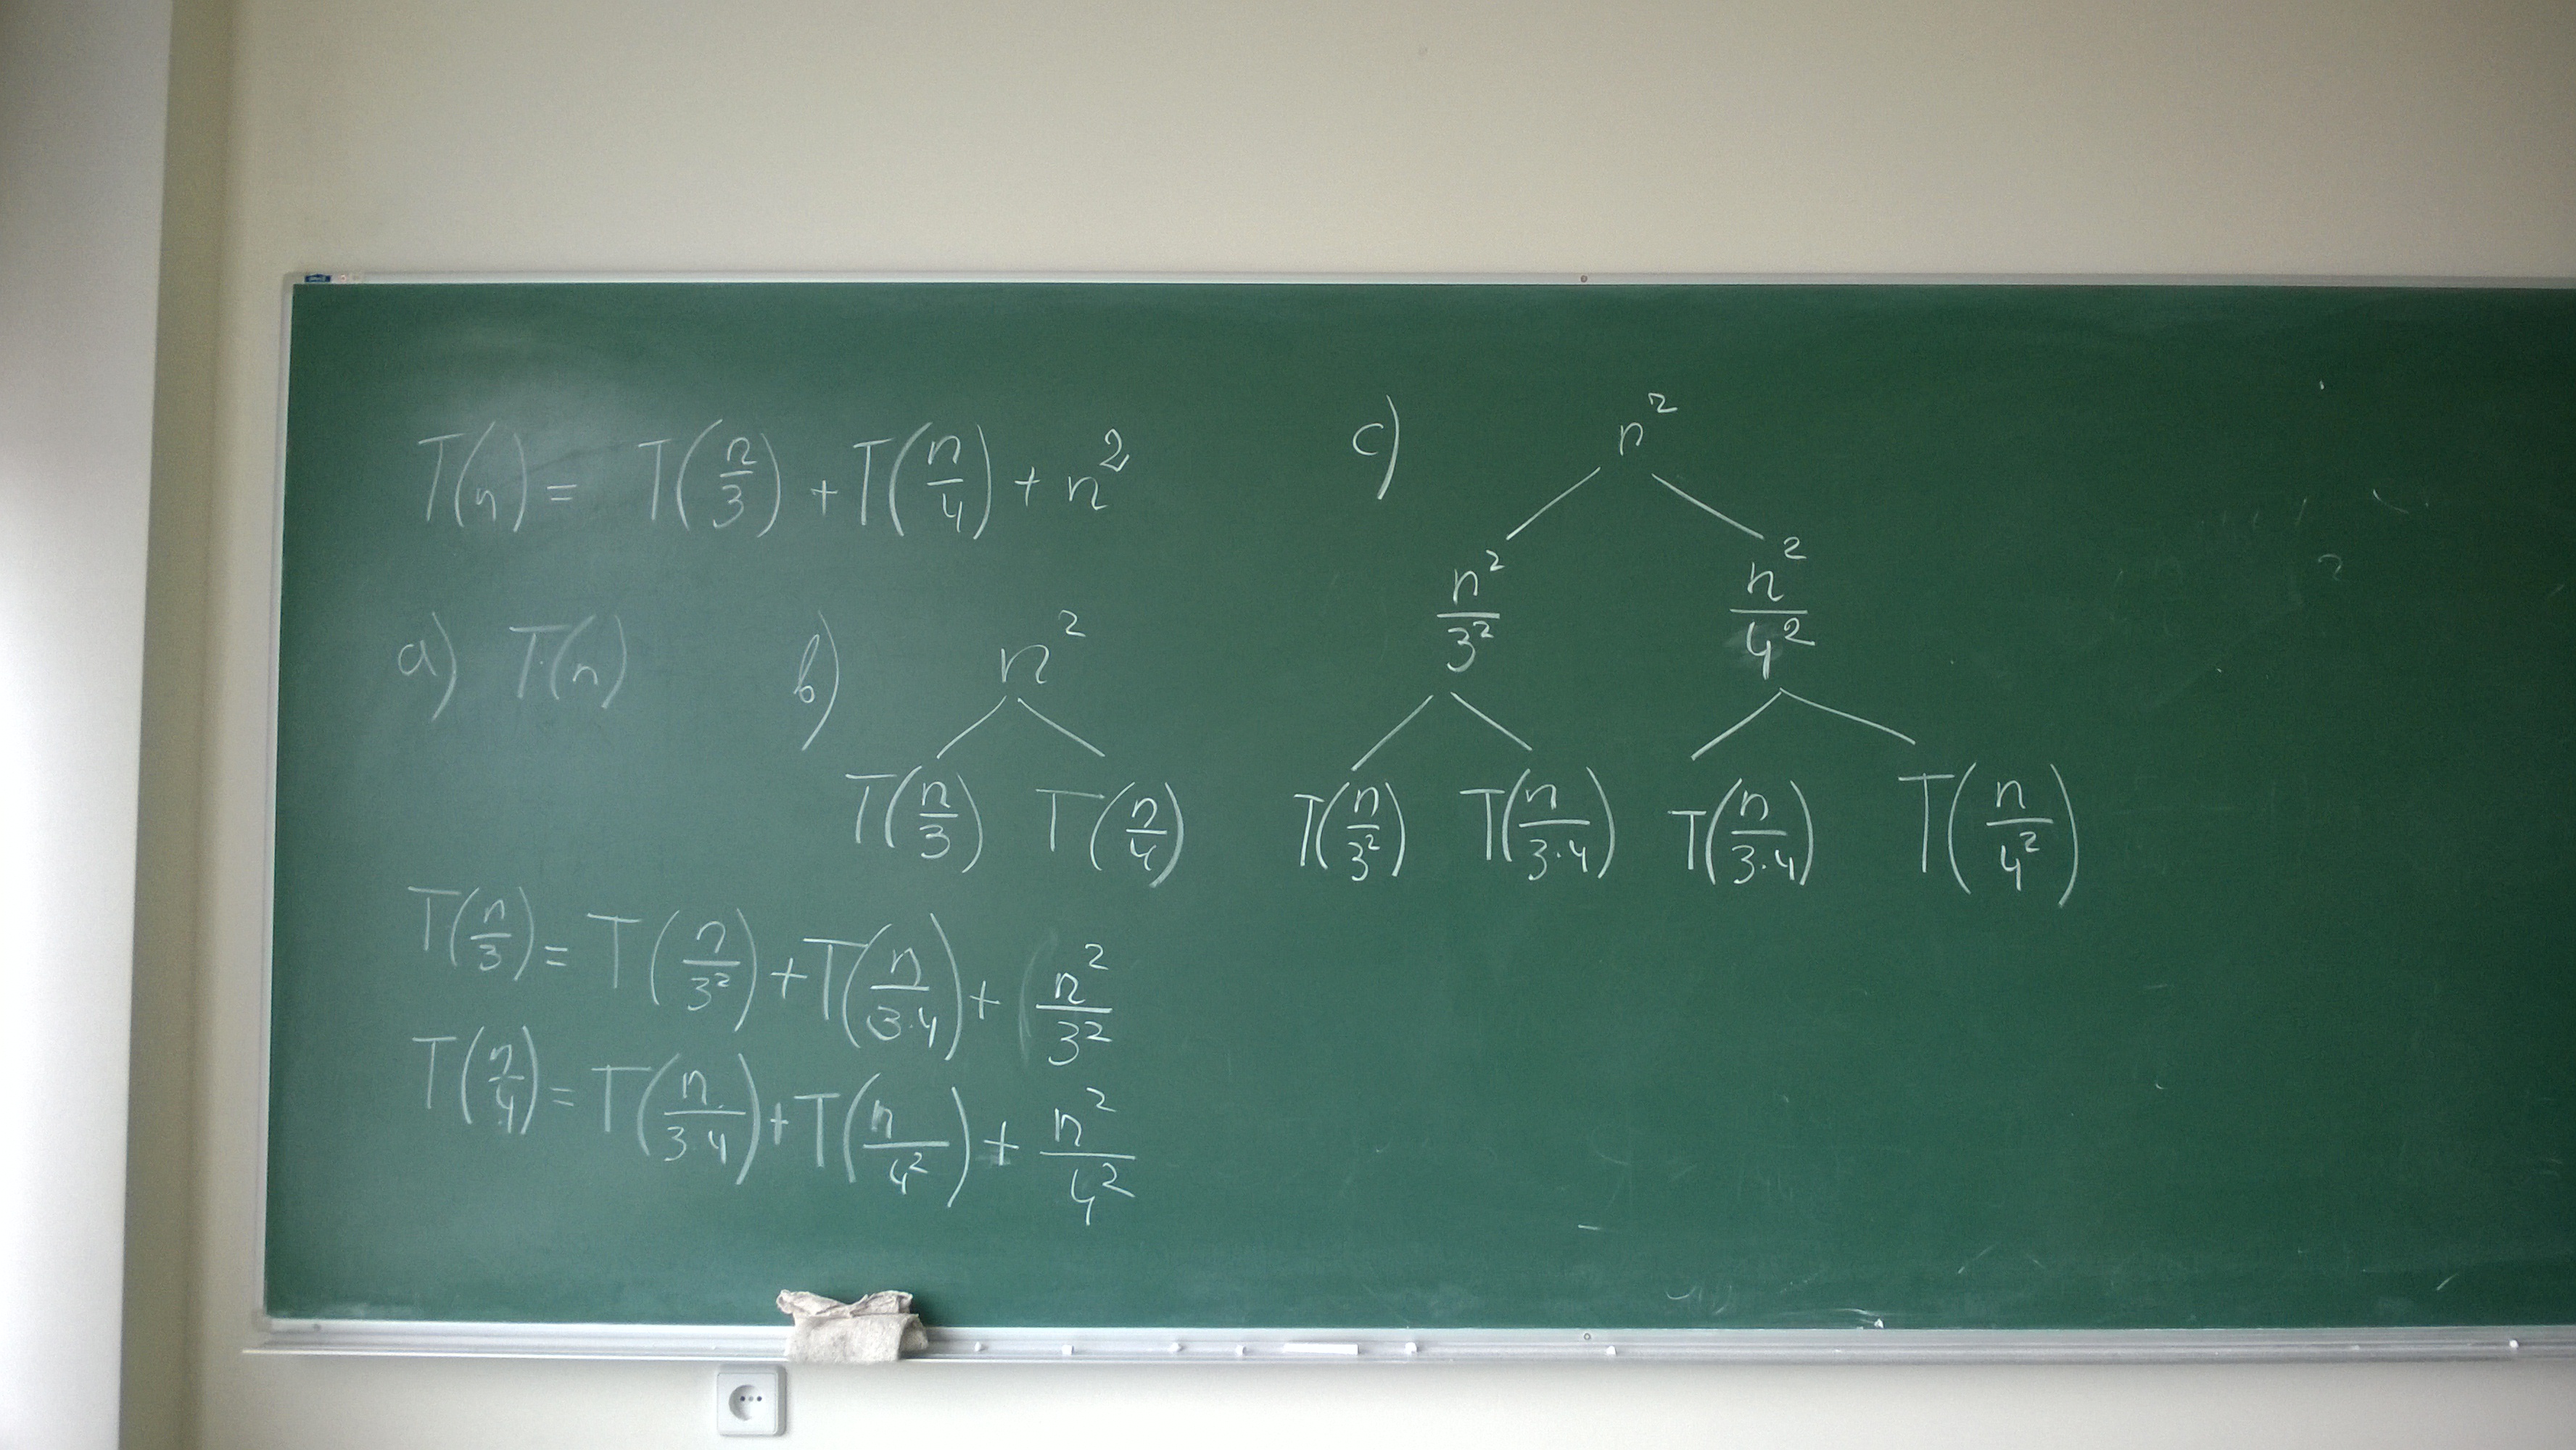 T(n) = T(n/3) + T(n/4) + n²
a) T(n)
b) n²
T(n/3) T(n/4)
T(n/3) = T(n/3²) + T(n/3·4) + n²/3²
T(n/4) = T(n/3·4) + T(n/4²) + n²/4²
c) n²
n²/3² n²/4²
T(n/3²) T(n/3·4) T(n/3·4) T(n/4²)